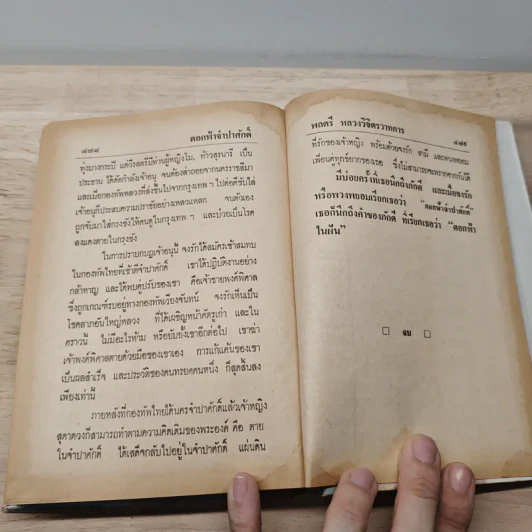 ๘๗๔ ดอกฟ้าจำปาศักดิ์
ทุ่งบางกระบี แต่วีรสตรีมีท่านผู้หญิงโม, ท้าวสุรนารี เป็น
ประธาน ได้ตัดกำลังเจ้าอนุ จนต้องล่าถอยจากนครราชสีมา
และเมื่อกองทัพหลวงที่ส่งขึ้นไปจากกรุงเทพ ฯ ไปต่อตีขับไล่
เจ้าอนุก็ประสบความปราชัยอย่างเหลวแหลก จนตัวเอง
ถูกจับมาใส่กรงขังให้คนดูในกรุงเทพ ฯ และป่วยเป็นโรค
ลงแดงตายในกรงขัง
ในการปราบกบฏเจ้าอนุนี้ จงรักได้สมัครเข้าสมทบ
ในกองทัพไทยที่เข้าตีจำปาศักดิ์ เขาได้ปฏิบัติงานอย่าง
กล้าหาญ และได้พบคู่ปรับของเขา คือเจ้าชายพงศ์พิศาล
ซึ่งถูกเกณฑ์รบอยู่ทางกองทัพเวียงจันทน์ จงรักเห็นเป็น
โชคลาภอันใหญ่หลวง ที่ได้เผชิญหน้าศัตรูเก่า และใน
คราวนี้ ไม่มีอะไรห้าม หรือยับยั้งเขาอีกต่อไป เขาฆ่า
เจ้าพงศ์พิศาลตายด้วยมือของเขาเอง การแก้แค้นของเขา
เป็นผลสำเร็จ และประวัติของคนทรยศคนหนึ่ง ก็สุดสิ้นลง
เพียงเท่านี้
ภายหลังที่กองทัพไทยได้นครจำปาศักดิ์แล้วเจ้าหญิง
สุดาดวงก็สามารถทำตามความคิดเดิมของพระองค์ คือ ตาย
ในจำปาศักดิ์ ได้เสด็จกลับไปอยู่ในจำปาศักดิ์ แผ่นดิน
พลตรี หลวงวิจิตรวาทการ ๘๗๕
ที่รักของเจ้าหญิง พร้อมด้วยจงรัก สามี และพวงพยอม
เพื่อนคู่ทุกข์ยากของเธอ ซึ่งไม่สามารถจะพรากจากกันได้
มีบ่อยครั้งที่เธอนึกถึงภักดี และเมื่อจงรัก
หรือพวงพยอมเรียกเธอว่า "ดอกฟ้าจำปาศักดิ์"
เธอก็นึกถึงคำของภักดี ที่เรียกเธอว่า "ดอกฟ้า
ในฝัน"
□ จบ □